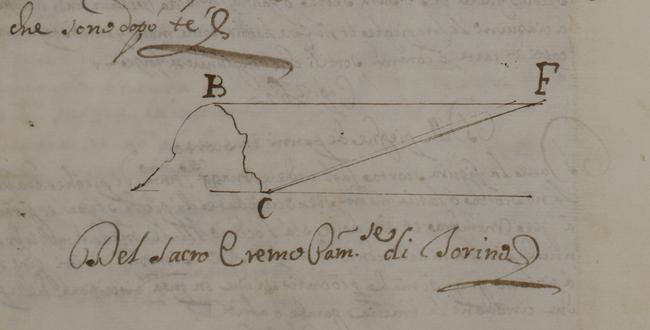 che sono dopo te
B F
C
Del Sacro Eremo Cam.se di Torino